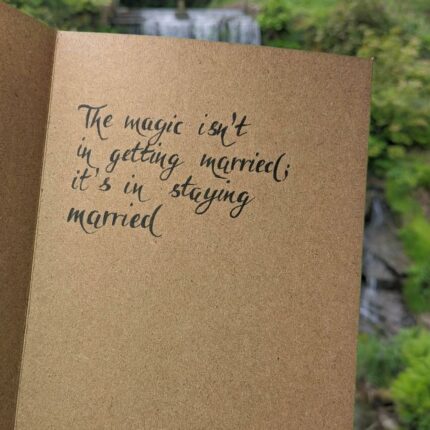 The magic isn't
in getting married;
it's in staying
married